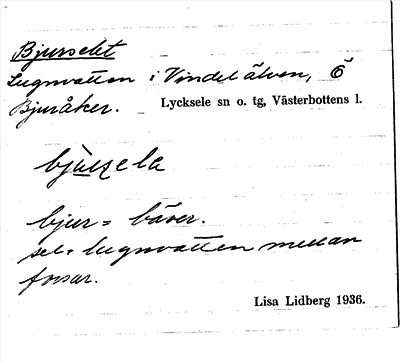 Bjurselet
Lugnvatten i Vindelälven, Ö
Bjuråker.
Lycksele sn o. tg, Västerbottens l.
bjur = bäver.
sel = lugnvatten mellan
forsar.
Lisa Lidberg 1936.